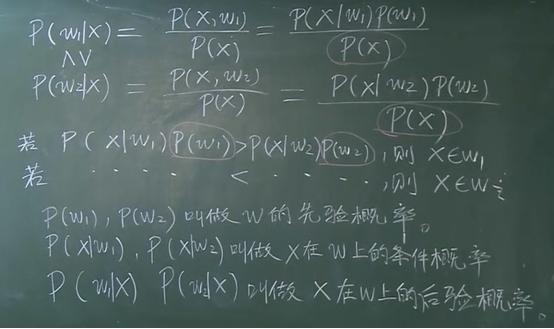 P(w₁|X) = P(X,w₁)/P(X) = P(X|w₁)P(w₁)/P(X)
∧∨
P(w₂|X) = P(X,w₂)/P(X) = P(X|w₂)P(w₂)/P(X)
若 P(X|w₁)P(w₁)>P(X|w₂)P(w₂),则 X∈w₁
若 ···· < ····,则 X∈w₂
P(w₁),P(w₂)叫做W的先验概率。
P(X|w₁),P(X|w₂)叫做X在W上的条件概率
P(w₁|X) P(w₂|X)叫做X在W上的后验概率。